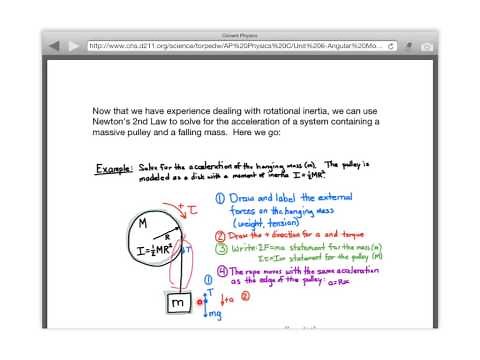 Covert Physics
http://www.chs.d211.org/science/forpedw/AP%20Physics%20C/Unit%206-Angular%20Mo...
Now that we have experience dealing with rotational inertia, we can use
Newton's 2nd Law to solve for the acceleration of a system containing a
massive pulley and a falling mass. Here we go:
Example: Solve for the acceleration of the hanging mass (m). The pulley is
modeled as a disk with a moment of inertia I=½MR².
+ τ
M
R
I=½MR²
T
① Draw and label the external
forces on the hanging mass
(weight, tension)
② Draw the + direction for a and torque
③ Write: ΣF=ma statement for the mass (m)
Στ=Iα statement for the pulley (M)
④ The rope moves with the same acceleration
as the edge of the pulley: a=Rα
①
m
T
mg
+a
②